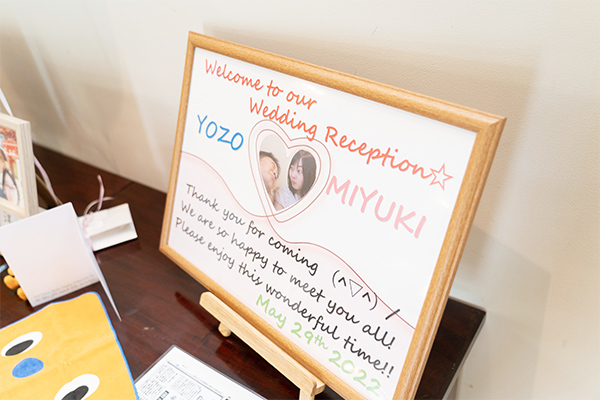 Welcome to our
Wedding Reception☆
YOZO
MIYUKI
Thank you for coming (^▽^)/
We are so happy to meet you all!
Please enjoy this wonderful time!!
May 29th 2022